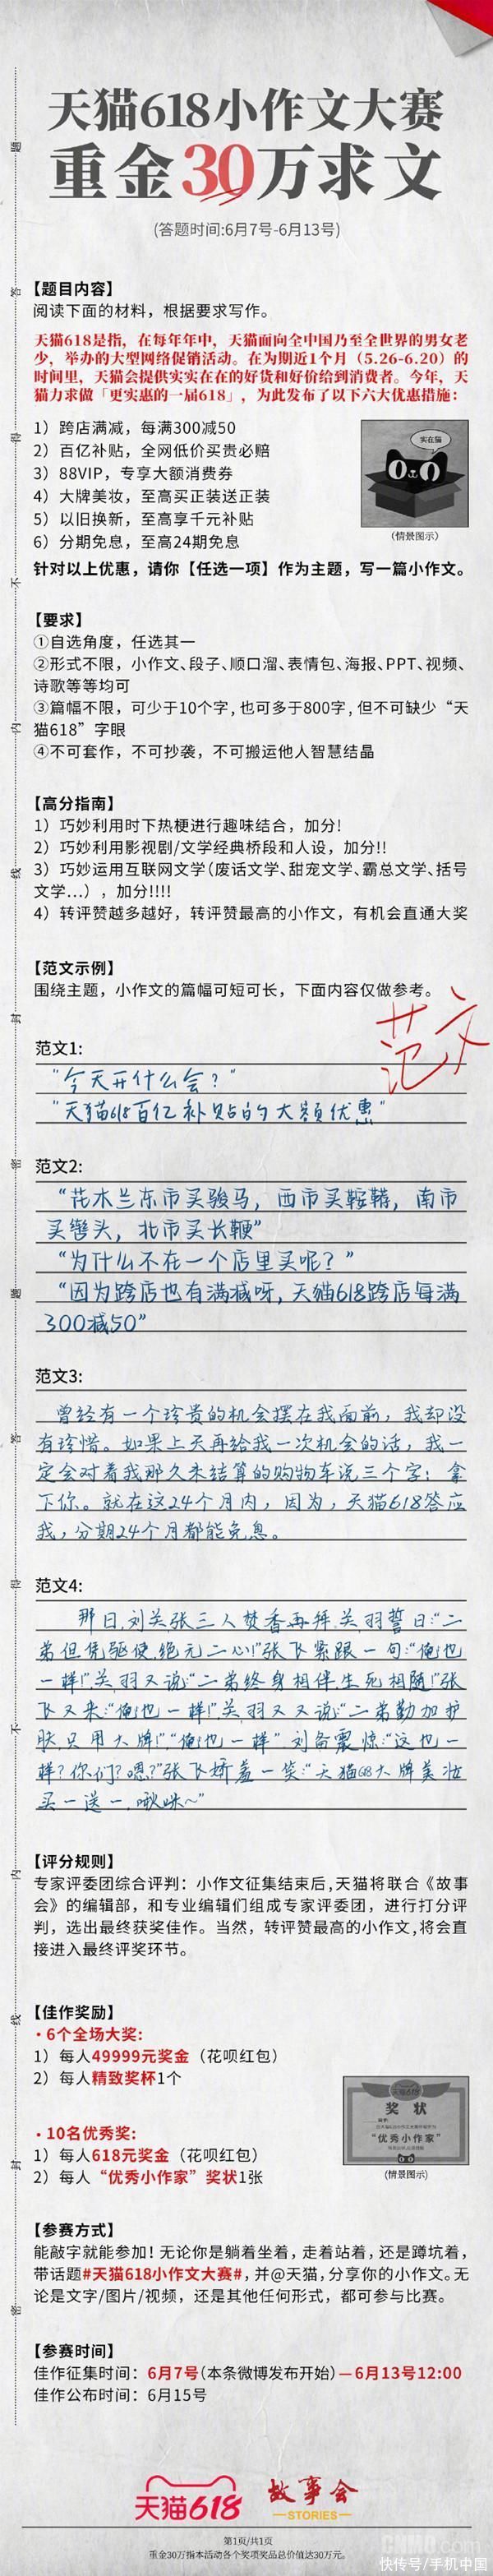 天猫618小作文大赛
重金30万求文
(答题时间:6月7号-6月13号)
【题目内容】
阅读下面的材料，根据要求写作。
天猫618是指，在每年年中，天猫面向全中国乃至全世界的男女老
少，举办的大型网络促销活动。在为期近1个月（5.26-6.20）的
时间里，天猫会提供实实在在的好货和好价给到消费者。今年，天
猫力求做「更实惠的一届618」，为此发布了以下六大优惠措施：
1）跨店满减，每满300减50
2）百亿补贴，全网低价买贵必赔
3）88VIP，专享大额消费券
4）大牌美妆，至高买正装送正装
5）以旧换新，至高享千元补贴
6）分期免息，至高24期免息
实在猫
（情景图示）
针对以上优惠，请你【任选一项】作为主题，写一篇小作文。
【要求】
①自选角度，任选其一
②形式不限，小作文、段子、顺口溜、表情包、海报、PPT、视频、
诗歌等等均可
③篇幅不限，可少于10个字，也可多于800字，但不可缺少“天
猫618”字眼
④不可套作，不可抄袭，不可搬运他人智慧结晶
【高分指南】
1）巧妙利用时下热梗进行趣味结合，加分!
2）巧妙利用影视剧/文学经典桥段和人设，加分!!
3）巧妙运用互联网文学（废话文学、甜宠文学、霸总文学、括号
文学...），加分!!!!
4）转评赞越多越好，转评赞最高的小作文，有机会直通大奖
【范文示例】
围绕主题，小作文的篇幅可短可长，下面内容仅做参考。
范文
范文1:
"今天开什么会？"
"天猫618百亿补贴的大额优惠"
范文2:
“花木兰东市买骏马，西市买鞍鞯，南市
买辔头，北市买长鞭”
“为什么不在一个店里买呢？”
“因为跨店也有满减呀，天猫618跨店每满
300减50”
范文3:
曾经有一个珍贵的机会摆在我面前，我却没
有珍惜。如果上天再给我一次机会的话，我一
定会对着我那久未结算的购物车说三个字：拿
下你。就在这24个月内，因为，天猫618答应
我，分期24个月都能免息。
范文4:
那日，刘关张三人焚香再拜，关羽誓曰：“二
弟但凭驱使，绝无二心！”张飞紧跟一句：“俺也
一样！”关羽又说：“二弟终身相伴，生死相随！”张
飞又来：“俺也一样！”关羽又又说：“二弟勤加护
肤，只用大牌！”“俺也一样”刘备震惊：“这也一
样？你们？嗯？”张飞娇羞一笑：“天猫618大牌美妆
买一送一，啾咪~”
【评分规则】
专家评委团综合评判：小作文征集结束后，天猫将联合《故事
会》的编辑部，和专业编辑们组成专家评委团，进行打分评
判，选出最终获奖佳作。当然，转评赞最高的小作文，将会直
接进入最终评奖环节。
【佳作奖励】
·6个全场大奖:
1）每人49999元奖金（花呗红包）
2）每人精致奖杯1个
·10名优秀奖:
1）每人618元奖金（花呗红包）
2）每人“优秀小作家”奖状1张
天猫618
奖状
“优秀小作家”
（情景图示)
【参赛方式】
能敲字就能参加！无论你是躺着坐着，走着站着，还是蹲坑着，
带话题#天猫618小作文大赛#，并@天猫，分享你的小作文。无
论是文字/图片/视频，还是其他任何形式，都可参与比赛。
【参赛时间】
佳作征集时间：6月7号(本条微博发布开始)—6月13号12:00
佳作公布时间：6月15号
天猫618
故事会
—STORIES—
第1页/共1页
重金30万指本活动各个奖项奖品总价值达30万元。
CNMO.com
快传号/手机中国
题
答
得
不
内
线
封
密
题
答
得
不
内
线
封
密